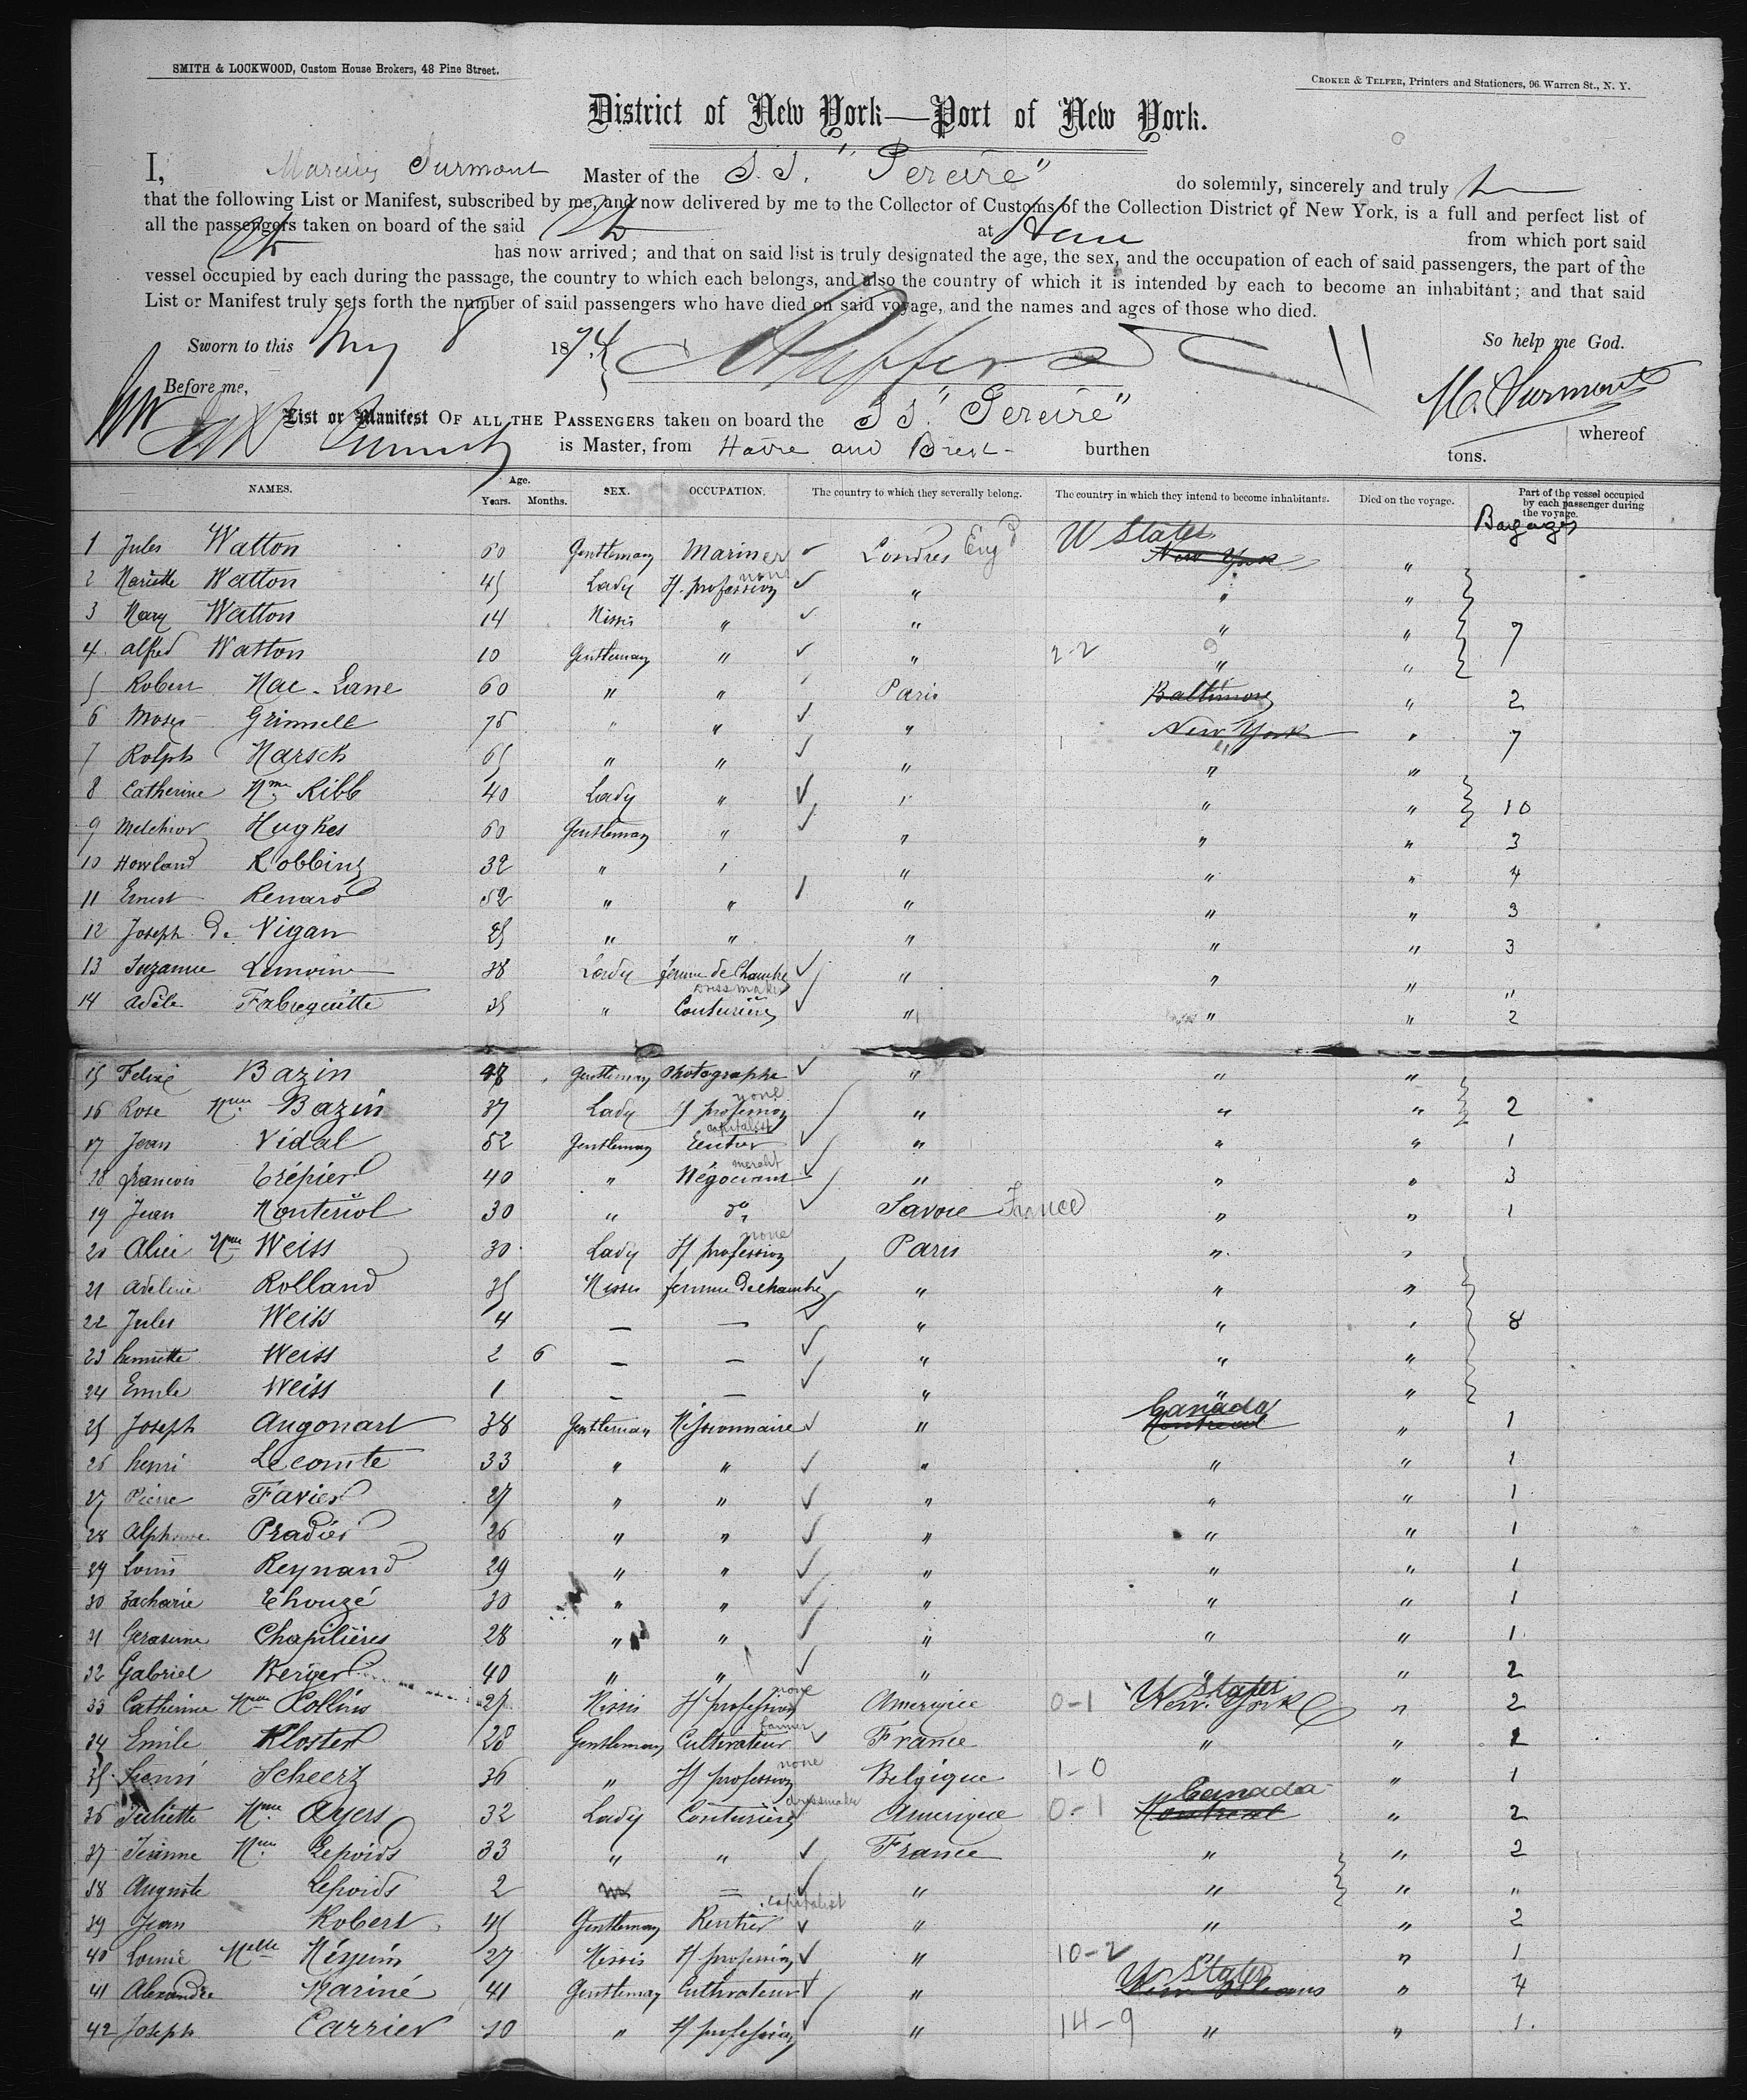 SMITH & LOCKWOOD, Custom House Brokers, 48 Pine Street.
CROKER & TELFER, Printers and Stationers, 96 Warren St., N. Y.
District of New York—Port of New York.
I, Marius Surmont Master of the S.S. "Pereire" do solemnly, sincerely and truly
that the following List or Manifest, subscribed by me, and now delivered by me to the Collector of Customs of the Collection District of New York, is a full and perfect list of
all the passengers taken on board of the said at from which port said
has now arrived; and that on said list is truly designated the age, the sex, and the occupation of each of said passengers, the part of the
vessel occupied by each during the passage, the country to which each belongs, and also the country of which it is intended by each to become an inhabitant; and that said
List or Manifest truly sets forth the number of said passengers who have died on said voyage, and the names and ages of those who died.
Sworn to this 1874 So help me God.
Before me, M. Surmont
List or Manifest OF ALL THE PASSENGERS taken on board the S S. "Pereire" whereof
is Master, from Havre and Brest burthen tons.
NAMES. Age. Years. Months. SEX. OCCUPATION. The country to which they severally belong. The country in which they intend to become inhabitants. Died on the voyage. Part of the vessel occupied by each passenger during the voyage.
Bagages
1 Jules Watton 60 Gentleman Mariner Londres Eng d U States New York "
2 Mariette Watton 45 Lady H. profession none " " "
3 Mary Watton 14 Missis " " " "
4 alfred Watton 10 Gentleman " " 2-2 " " 7
5 Robert Mac-Lane 60 " " Paris Baltimore " 2
6 Moses Grinnell 75 " " " New York " 7
7 Rolph Marsch 65 " " " " "
8 Catherine Mme Ribb 40 Lady " " " " 10
9 Melchior Hughes 60 Gentleman " " " " 3
10 Howland Robbins 32 " " " " " 4
11 Ernest Renard 52 " " " " " 3
12 Joseph de Vigan " " " " " 3
13 Suzanne Lemoine 38 Lady femme de Chambre " " " "
14 adèle Fabreguitte 35 " Couturière dressmaker " " " 2
15 Felix Bazin 48 Gentleman Photographe " " "
16 Rose Mme Bazin 37 Lady H profession none " " " 2
17 Jean Vidal 52 Gentleman Rentier capitalist " " " 1
18 francois Trépier 40 " Négociant " " " 3
19 Jean Monteriol 30 " do Savoie France " " 1
20 Alice Mme Weiss 30 Lady H profession none Paris " "
21 Adeline Rolland 35 Missis femme de chambre " " "
22 Jules Weiss 4 — — " " " 8
23 henriette Weiss 2 6 — — " " "
24 Emile Weiss 1 — — " " "
25 Joseph Augonart 38 Gentleman Missionnaire " Canada Montreal " 1
26 henri Lecomte 33 " " " " " 1
27 Pierre Favier 27 " " " " " 1
28 Alphonse Pradier 26 " " " " " 1
29 Louis Reynaud 29 " " " " " 1
30 Zacharie Chouzé 30 " " " " " 1
31 Gerasime Chapilières 28 " " " " " 1
32 Gabriel Berger 40 " " " " " 2
33 Catherine Mme Collins 27 Missis H profession none Amerique 0-1 U States New York " 2
34 Emile Kloster 28 Gentleman Cultivateur farmer France " "
35 henri Scheerz 36 " H profession none Belgique 1-0 " " 1
36 Juliette Mme Ayers 32 Lady Couturière dressmaker Amerique 0-1 Canada Montreal " 2
37 Jeanne Mme Lepoids 33 " " France " " 2
38 Auguste Lepoids 2 = " " " "
39 Jean Robert 45 Gentleman Rentier capitalist " " " 2
40 Louise Melle 27 Missis H profession " 10-2 " " 1
41 Alexandre Mariné 41 Gentleman Cultivateur " U States New Orleans " 4
42 Joseph Carrier " H profession " 14-9 " " 1.